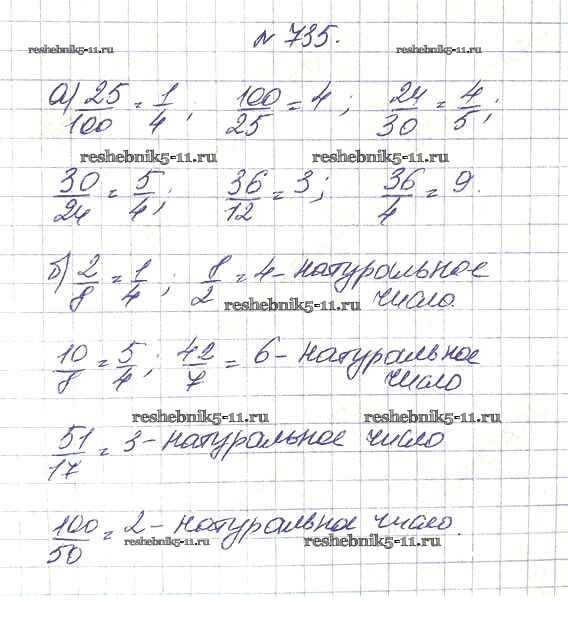 № 735.
reshebnik5-11.ru reshebnik5-11.ru
а) 25/100 = 1/4; 100/25 = 4; 24/30 = 4/5;
reshebnik5-11.ru reshebnik5-11.ru
30/24 = 5/4; 36/12 = 3; 36/4 = 9.
б) 2/8 = 1/4; 8/2 = 4 - натуральное
reshebnik5-11.ru число.
10/8 = 5/4; 42/7 = 6 - натуральное
число
reshebnik5-11.ru reshebnik5-11.ru
51/17 = 3 - натуральное число
100/50 = 2 - натуральное число.
reshebnik5-11.ru reshebnik5-11.ru